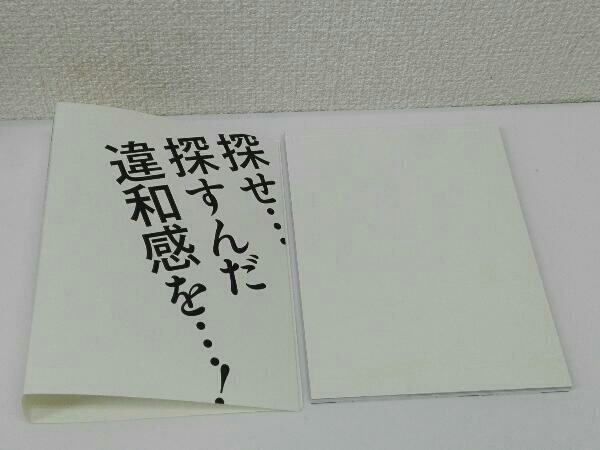 探せ…
探すんだ
違和感を…!